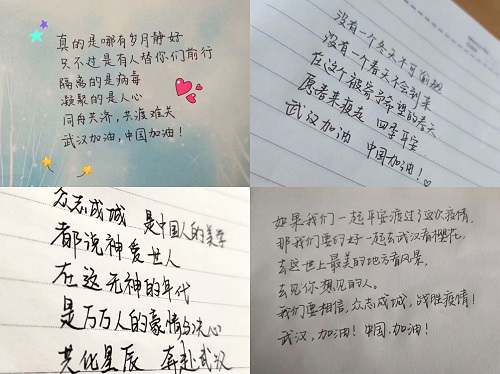 真的是哪有岁月静好
只不过是有人替你们前行
隔离的是病毒
凝聚的是人心
同舟共济，共渡难关
武汉加油，中国加油！
没有一个冬天不可逾越
没有一个春天不会到来
在这个被寄予希望的春天
愿春来疫走 四季平安
武汉加油 中国加油！
众志成城 是中国人的美学
都说神爱世人
在这无神的年代
是万万人的豪情与决心
共化星辰 奔赴武汉
如果我们一起平安渡过了这次疫情，
那我们要约好一起去武汉看樱花，
去这世上最美的地方看风景，
去见你想见的人。
我们要相信，众志成城，战胜疫情！
武汉，加油！中国，加油！